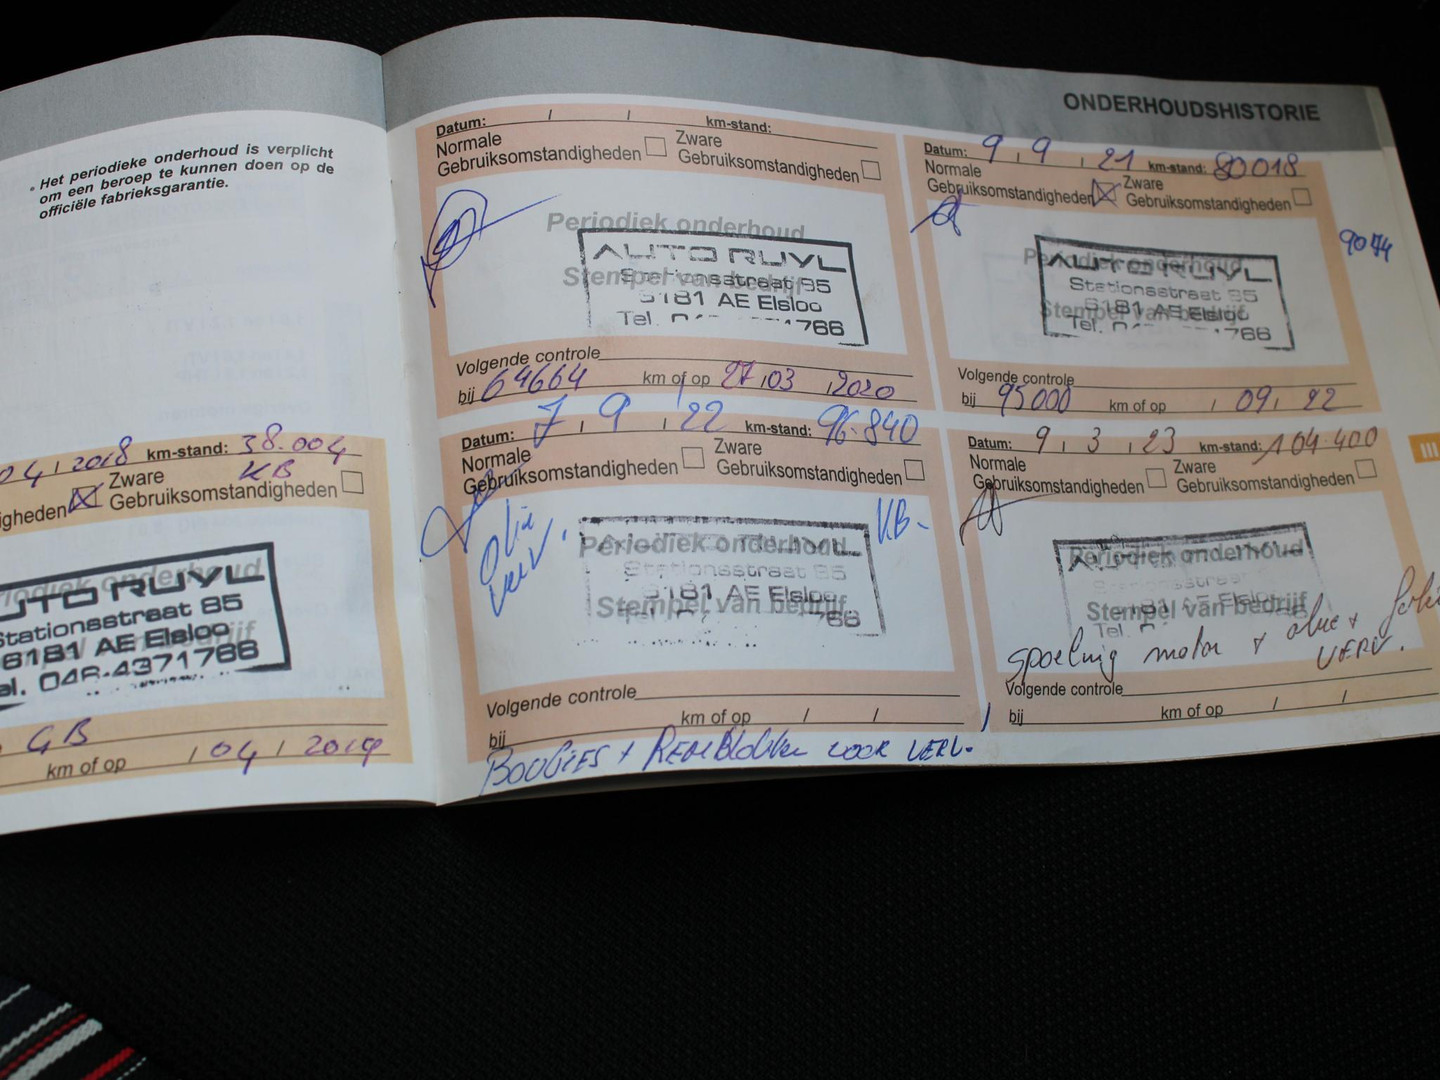 ONDERHOUDSHISTORIE
• Het periodieke onderhoud is verplicht
om een beroep te kunnen doen op de
officiële fabrieksgarantie.
04 / 2018 km-stand: 38.004
KB
Zware
Gebruiksomstandigheden
Periodiek onderhoud
AUTO RUYL
Stationsstraat 85
6181 AE Elsloo
Tel. 046-4371766
GB
km of op / 04 / 2019
Datum: / / km-stand:
Normale Gebruiksomstandigheden
Zware Gebruiksomstandigheden
Periodiek onderhoud
Stempel van bedrijf
AUTO RUYL
Stationsstraat 85
6181 AE Elsloo
Tel.
Volgende controle
bij 64664 km of op 27 / 03 / 2020
Datum: 9 / 9 / 21 km-stand: 80018
Normale Gebruiksomstandigheden
Zware Gebruiksomstandigheden
Periodiek onderhoud
Stempel van bedrijf
AUTO RUYL
Stationsstraat 85
6181 AE Elsloo
Tel.
Volgende controle
bij 95000 km of op / 09 / 22
Datum: 7 / 9 / 22 km-stand: 96.840
Normale Gebruiksomstandigheden
Zware Gebruiksomstandigheden
Olie
verv.
KB-
Periodiek onderhoud
Stempel van bedrijf
Stationsstraat 85
6181 AE Elsloo
Volgende controle
bij km of op / /
BOUGIES + REMBLOKKEN VOOR VERV.
Datum: 9 / 3 / 23 km-stand: 104.400
Normale Gebruiksomstandigheden
Zware Gebruiksomstandigheden
Periodiek onderhoud
Stempel van bedrijf
Tel.
Spoeling motor + olie +
VERV.
Volgende controle
bij km of op / /
III